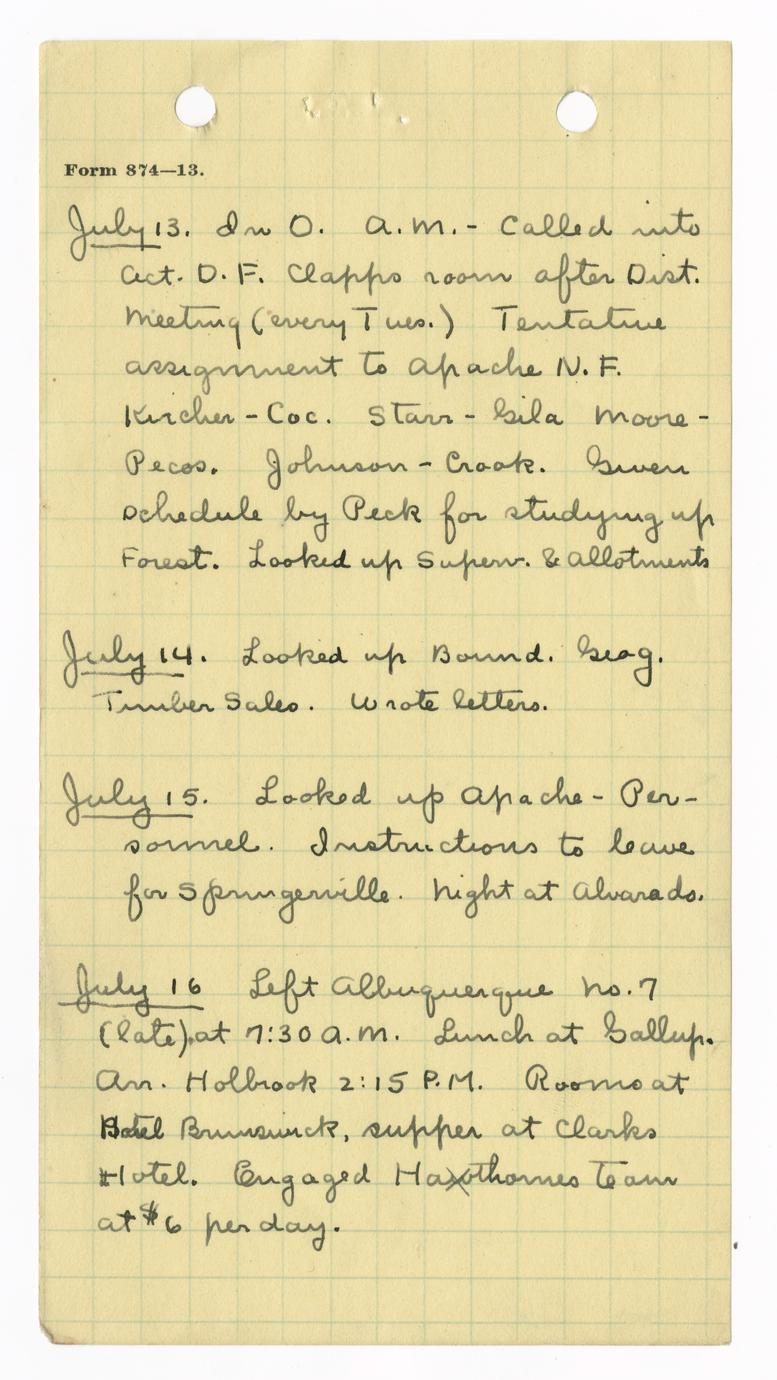 Form 874—13.
July 13. In O. A.M. - Called into
Act. D.F. Clapps room after Dist.
Meeting (every Tues.) Tentative
assignment to Apache N.F.
Kircher - Coc. Starr - Gila Moore -
Pecos. Johnson - Crook. Given
schedule by Peck for studying up
Forest. Looked up Superv. & allotments
July 14. Looked up Bound. Geog.
Timber Sales. Wrote letters.
July 15. Looked up Apache - Per-
sonnel. Instructions to leave
for Springerville. Night at Alvarado.
July 16 Left Albuquerque No. 7
(late) at 7:30 A.M. Lunch at Gallup.
Arr. Holbrook 2:15 P.M. Rooms at
Hotel Brunswick, supper at Clarks
Hotel. Engaged Hawthornes team
at $6 per day.